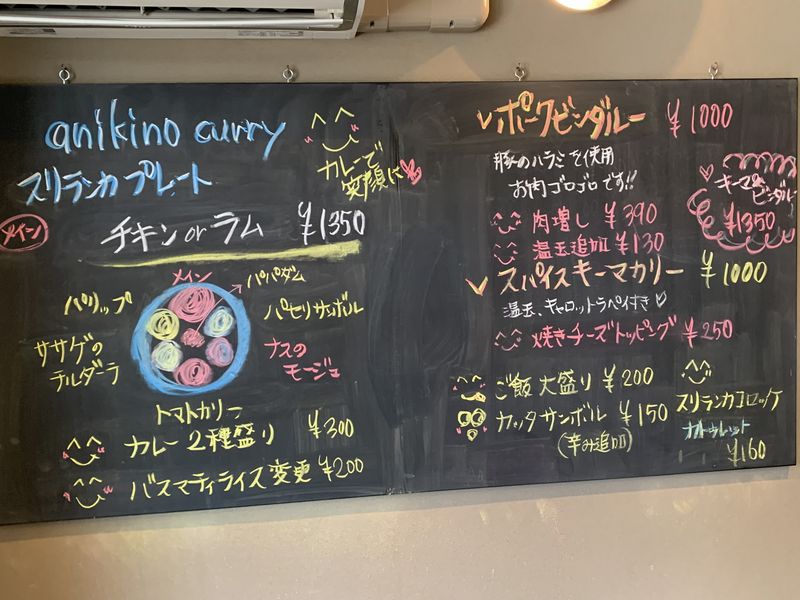 anikino curry
スリランカプレート
カレーで
笑顔に
メイン
チキン or ラム ¥1350
メイン
パパダム
パリップ
パセリサンボル
ササゲの
テルダーラ
ナスの
モージュ
トマトカリー
カレー2種盛り ¥300
バスマティライス変更 ¥200
ポークビンダルー ¥1000
豚のハラミを使用
お肉ゴロゴロです!!
肉増し ¥390
温玉追加 ¥130
キーマ&
ビンダルー
¥1350
スパイスキーマカリー ¥1000
温玉、キャロットラペ付き♡
焼きチーズトッピング ¥250
ご飯大盛り ¥200
カッタサンボル ¥150
(辛み追加)
スリランカコロッケ
¥160